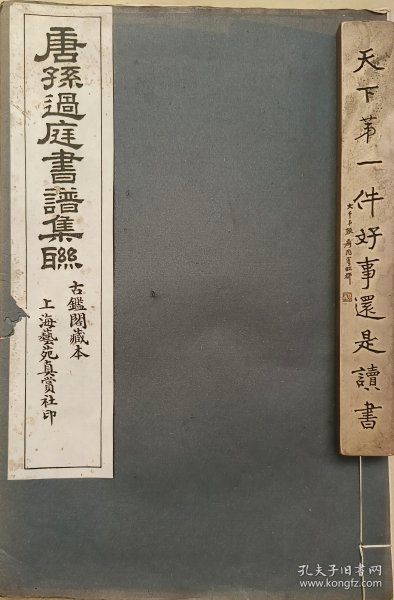 唐孫過庭書譜集聯
古鑑閣藏本
上海藝苑真賞社印
天下第一件好事還是讀書
孔夫子旧书网
www.kongfz.com